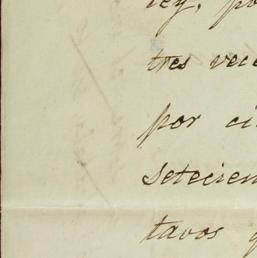 ley, po
tres vece
por ci
Setecien
tavos q